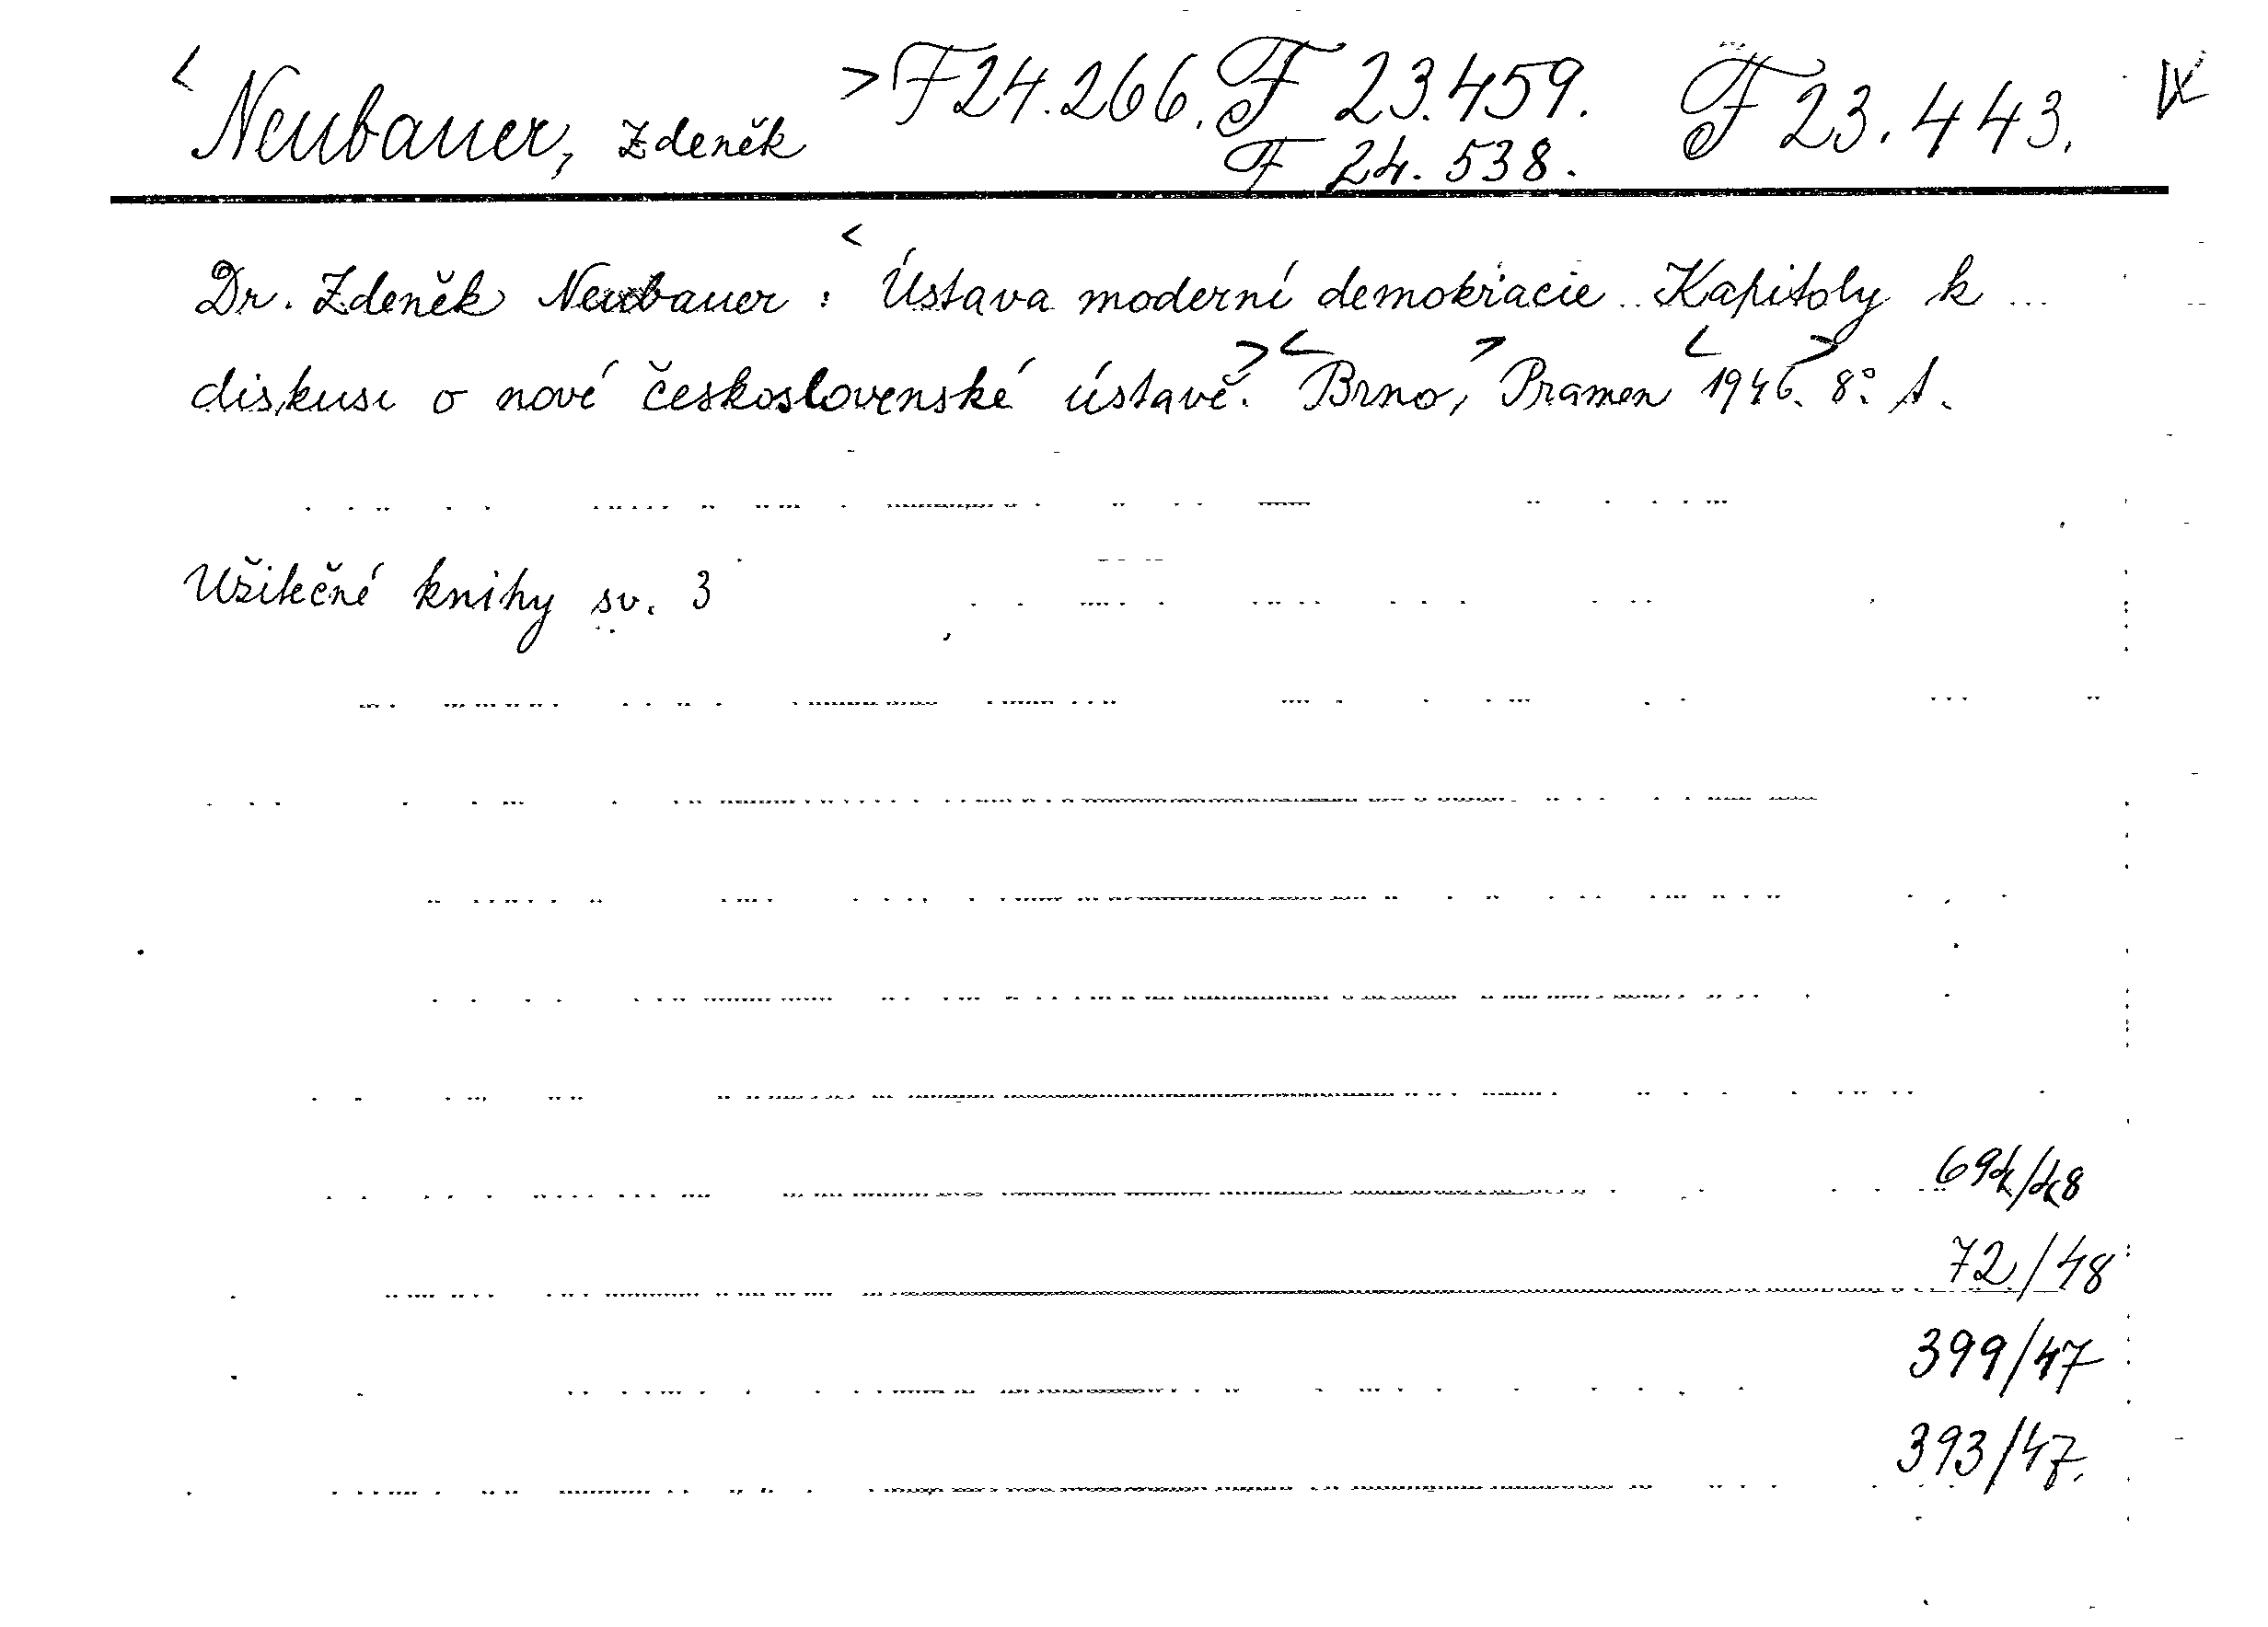 < Neubauer, Zdeněk > F 24.266. F 23.459. F 23.443.
F 24.538.
Dr. Zdeněk Neubauer : < Ústava moderní demokracie. Kapitoly k
diskusi o nové československé ústavě. > < Brno, > Pramen < 1946. > 8° A.
Užitečné knihy sv. 3
694/48
72/48
399/47
393/47.